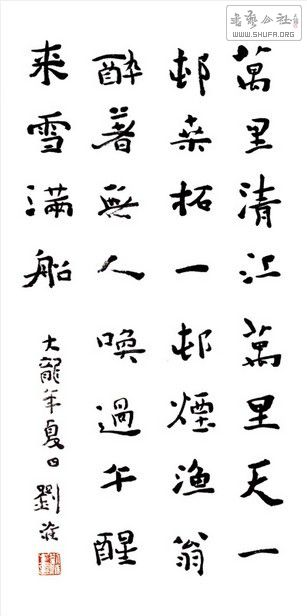 書藝公社
WWW.SHUFA.ORG
萬里清江萬里天一
邨桑柘一邨煙漁翁
酔著無人喚過午醒
来雪滿船
大龍年夏日劉